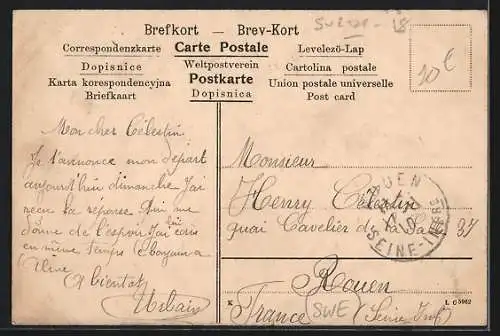 Brefkort — Brev-Kort
Correspondenzkarte Carte Postale Levelező-Lap
Dopisnice Weltpostverein Cartolina postale
Karta korespondencyjna Postkarte Union postale universelle
Briefkaart Dopisnica Post card
10€
Mon cher Célestin
Je t'annonce mon départ
aujourd'hui dimanche J'ai
reçu la réponse. Qui me
donne de l'espoir J'ai écris
en même temps
A bientôt
Urbain
Monsieur
Henry Célestin
quai Cavelier de la Salle 37
Rouen
France (SWE) (Seine Inf)
ROUEN
SEINE-INFRE
K
L C 5962